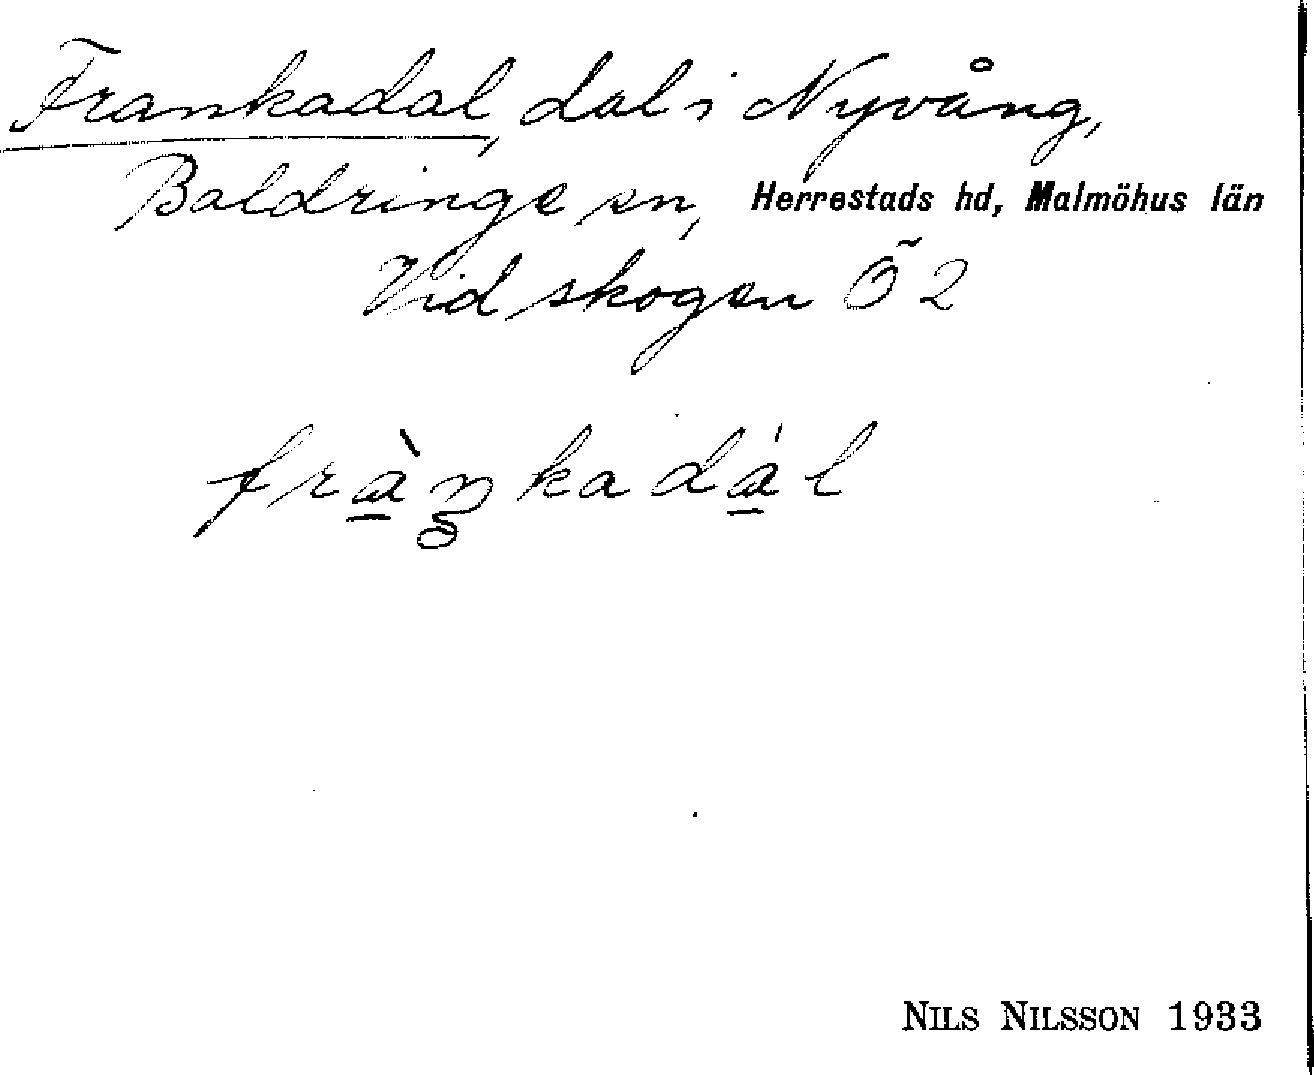 Frankadal, dal i Nyvång,
Baldringe sn, Herrestads hd, Malmöhus län
Vid skogen Ö 2
fràŋkadál
NILS NILSSON 1933